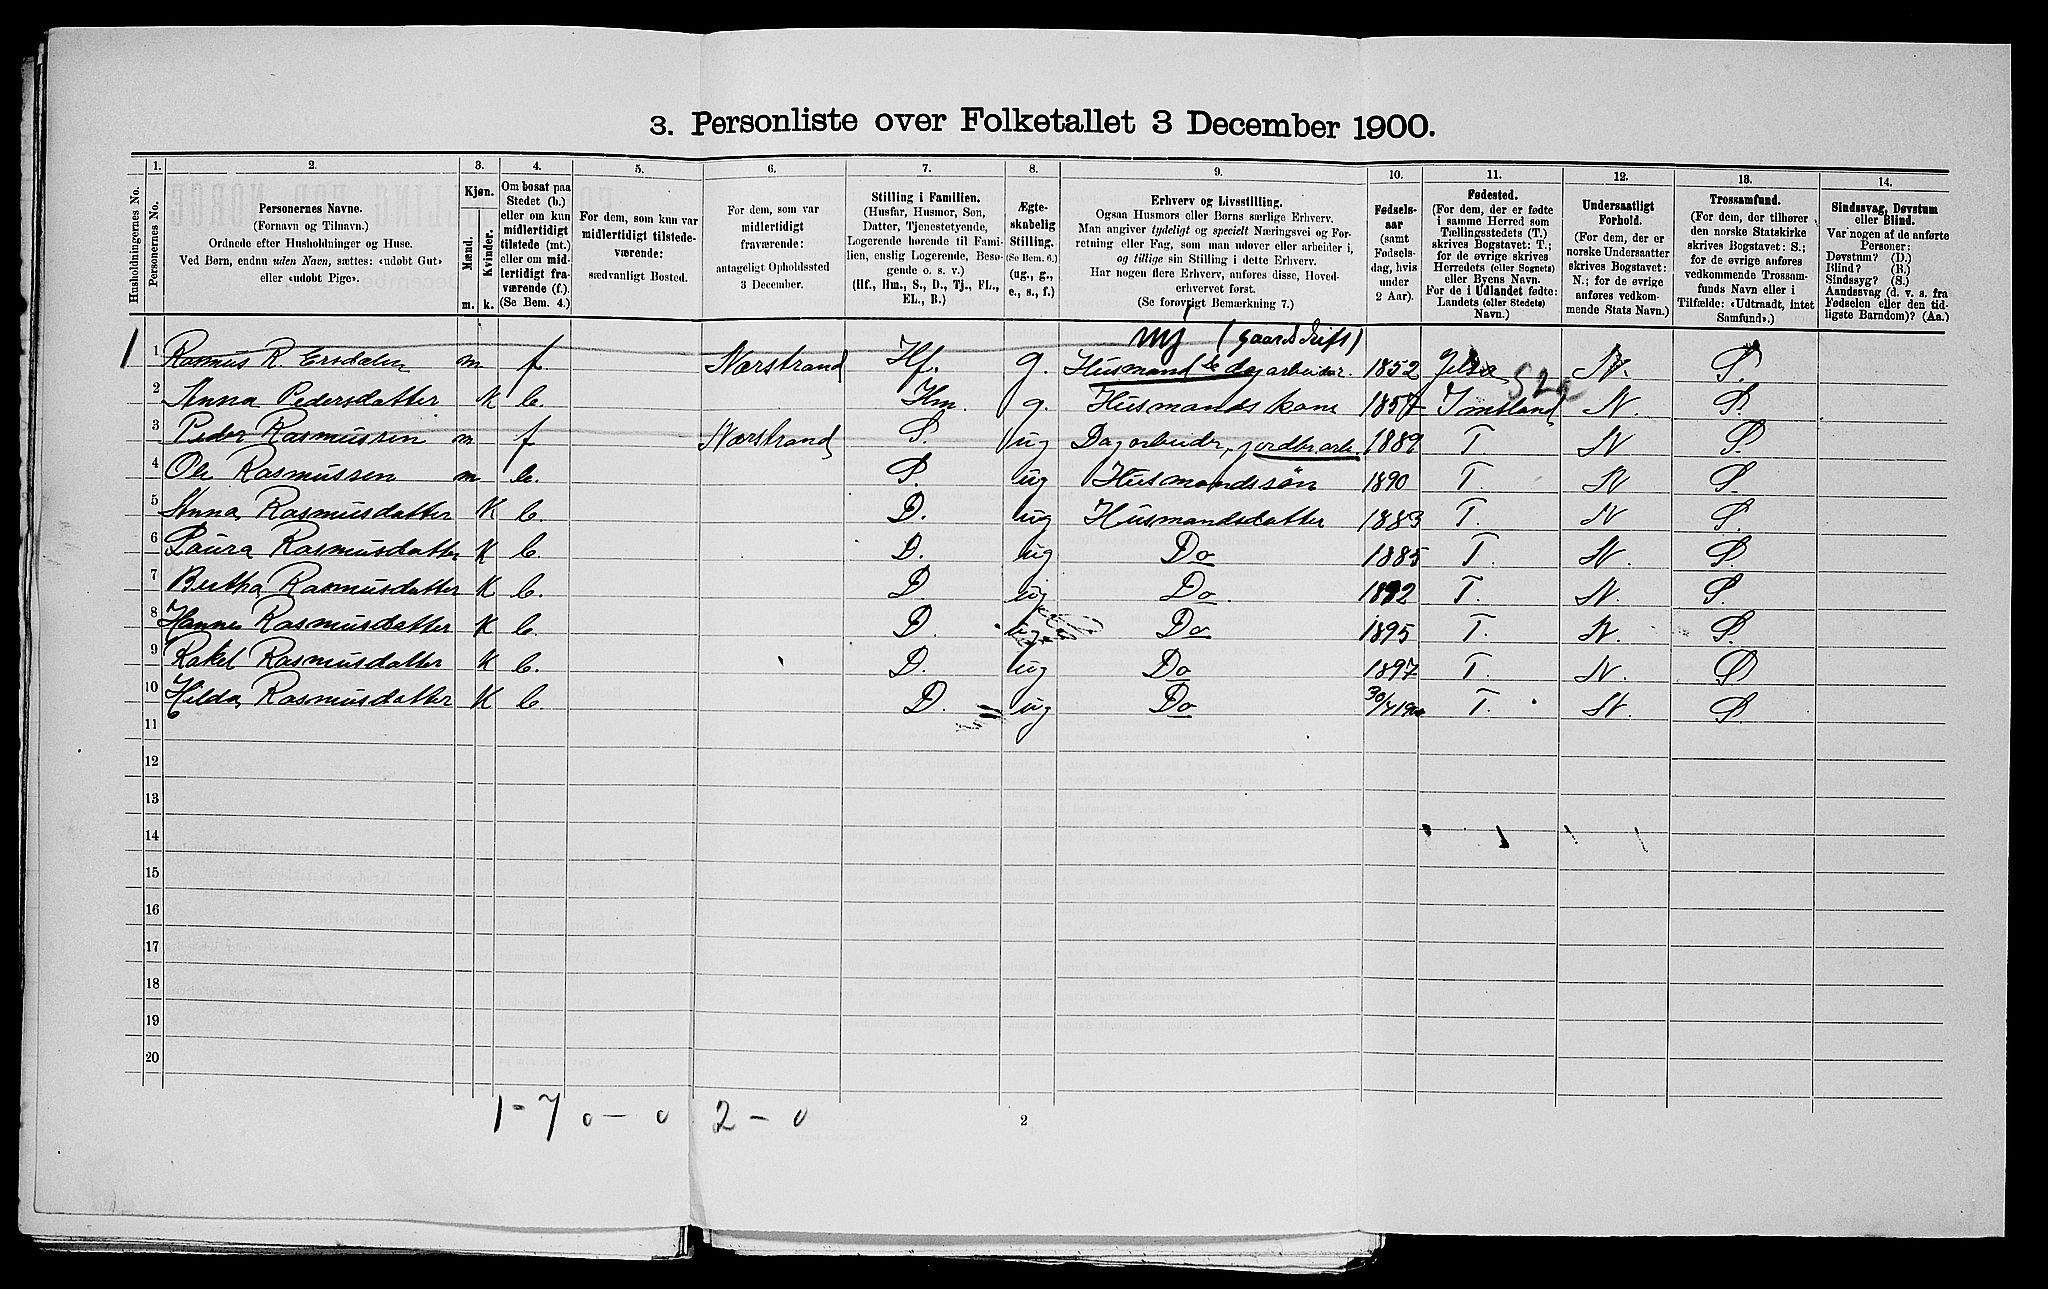 3. Personliste over Folketallet 3 December 1900.
1. 2. 3. 4. 5. 6. 7. 8. 9. 10. 11. 12. 13. 14.
Husholdningernes No.
Personernes No.
Personernes Navne.
(Fornavn og Tilnavn.)
Ordnede efter Husholdninger og Huse.
Ved Børn, endnu uden Navn, sættes: «udøbt Gut»
eller «udøbt Pige».
Kjøn.
Mænd.
Kvinder.
m. k.
Om bosat paa
Stedet (b.)
eller om kun
midlertidigt
tilstede (mt.)
eller om mid-
lertidigt fra-
værende (f.).
(Se Bem. 4.)
For dem, som kun var
midlertidigt tilstede-
værende:
sædvanligt Bosted.
For dem, som var
midlertidigt
fraværende:
antageligt Opholdssted
3 December.
Stilling i Familien.
(Husfar, Husmor, Søn,
Datter, Tjenestetyende,
Logerende hørende til Fami-
lien, enslig Logerende, Besø-
gende o. s. v.)
(Hf., Hm., S., D., Tj., FL.,
EL., B.)
Ægte-
skabelig
Stilling.
(Se Bem. 6.)
(ug., g.,
e., s., f.)
Erhverv og Livsstilling.
Ogsaa Husmors eller Børns særlige Erhverv.
Man angiver tydeligt og specielt Næringsvei og For-
retning eller Fag, som man udover eller arbeider i,
og tillige sin Stilling i dette Erhverv.
Har nogen flere Erhverv, anføres disse, Hoved-
erhvervet først.
(Se forøvrigt Bemærkning 7.)
Fødsels-
aar
(samt
Fødsels-
dag, hvis
under
2 Aar).
Fødested.
(For dem, der er fødte
i samme Herred som
Tællingsstedets (T.)
skrives Bogstavet: T.;
for de øvrige skrives
Herredets (eller Sognets)
eller Byens Navn.
For de i Udlandet fødte:
Landets (eller Stedets)
Navn.)
Undersaatligt
Forhold.
(For dem, der er
norske Undersaatter
skrives Bogstavet:
N.; for de øvrige
anføres vedkom-
mende Stats Navn.)
Trossamfund.
(For dem, der tilhører
den norske Statskirke
skrives Bogstavet: S.;
for de øvrige anføres
vedkommende Trossam-
funds Navn eller i
Tilfælde: «Udtraadt, intet
Samfund».)
Sindssvag, Døvstum
eller Blind.
Var nogen af de anførte
Personer:
Døvstum? (D.)
Blind? (B.)
Sindssyg? (S.)
Aandssvag (d. v. s. fra
Fødselen eller den tid-
ligste Barndom)? (Aa.)
(gaardsdrift)
1 1 Rasmus R. Ersdalen m f. Nærstrand Hf. g. Husmand & dagarbeider. 1852 Jelse N. S.
2 Anna Pedersdatter K b. Hm. g. Husmandskone 1857 Imsland N. S.
3 Peder Rasmussen m f Nærstrand S. ug Dagarbeider, jordbrarb. 1889 T. N S.
4 Ole Rasmussen m b. S. ug Husmandssøn 1890 T. N S.
5 Anna Rasmusdatter K b. D. ug Husmandsdatter 1883 T. N S.
6 Laura Rasmusdatter K b. D. ug Do 1885 T. N. S.
7 Bertha Rasmusdatter K b. D. ug Do. 1892 T. N. S.
8 Hanne Rasmusdatter K b. D. ug Do 1895 T. N. S.
9 Rakel Rasmusdatter K b. D. ug Do 1897 T. N. S
10 Hilda Rasmusdatter K b. D. ug Do 30/4 1900 T. N. S
11
12
13
14
15
16
17
18
19
20
1-7 0-0 2-0
2